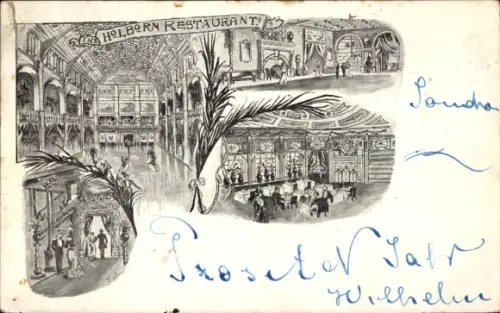 HOLBORN RESTAURANT.
London
Prosit N Jahr
Wilhelm